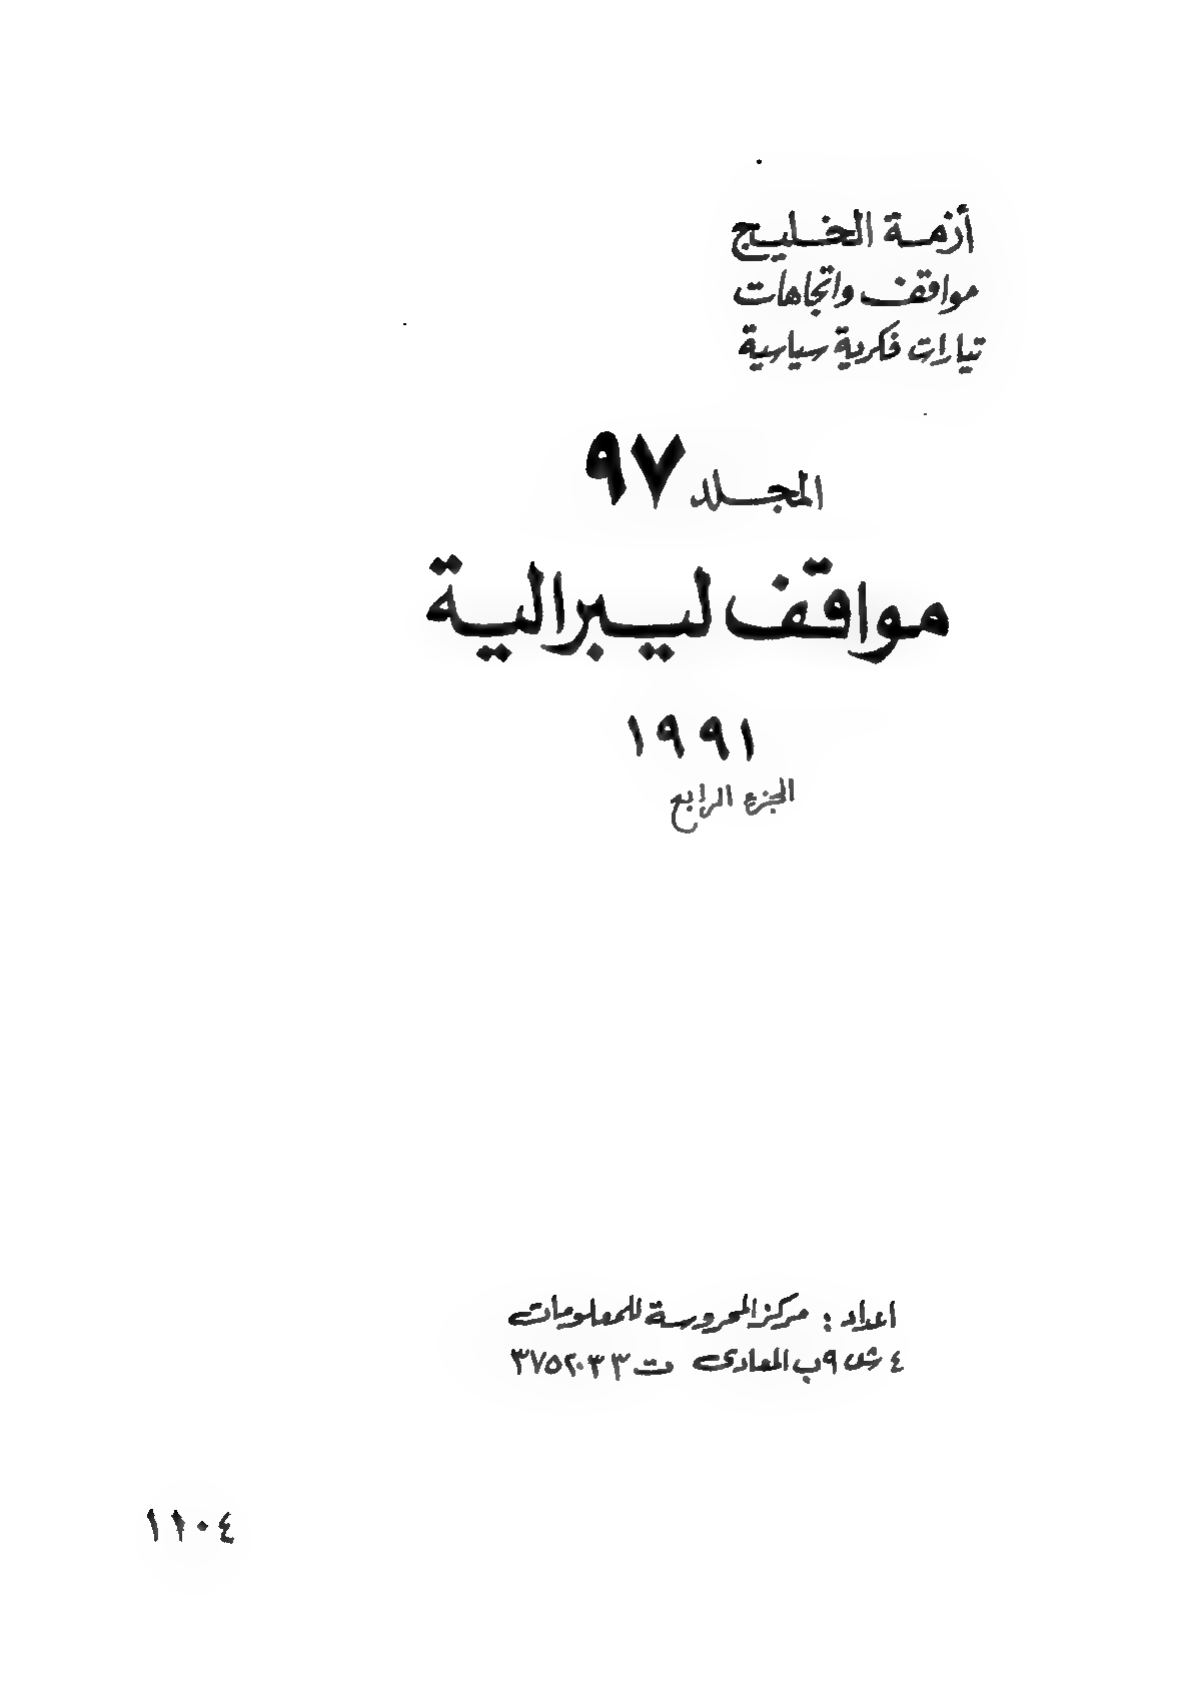 أزمة الخليج
مواقف واتجاهات
تيارات فكرية سياسية
المجلد ٩٧
مواقف ليبرالية
١٩٩١
الجزء الرابع
اعداد : مركز المحروسة للمعلومات
٤ ش ٩ب المعادى ت ٣٧٥٢٠٣٣
١١٠٤